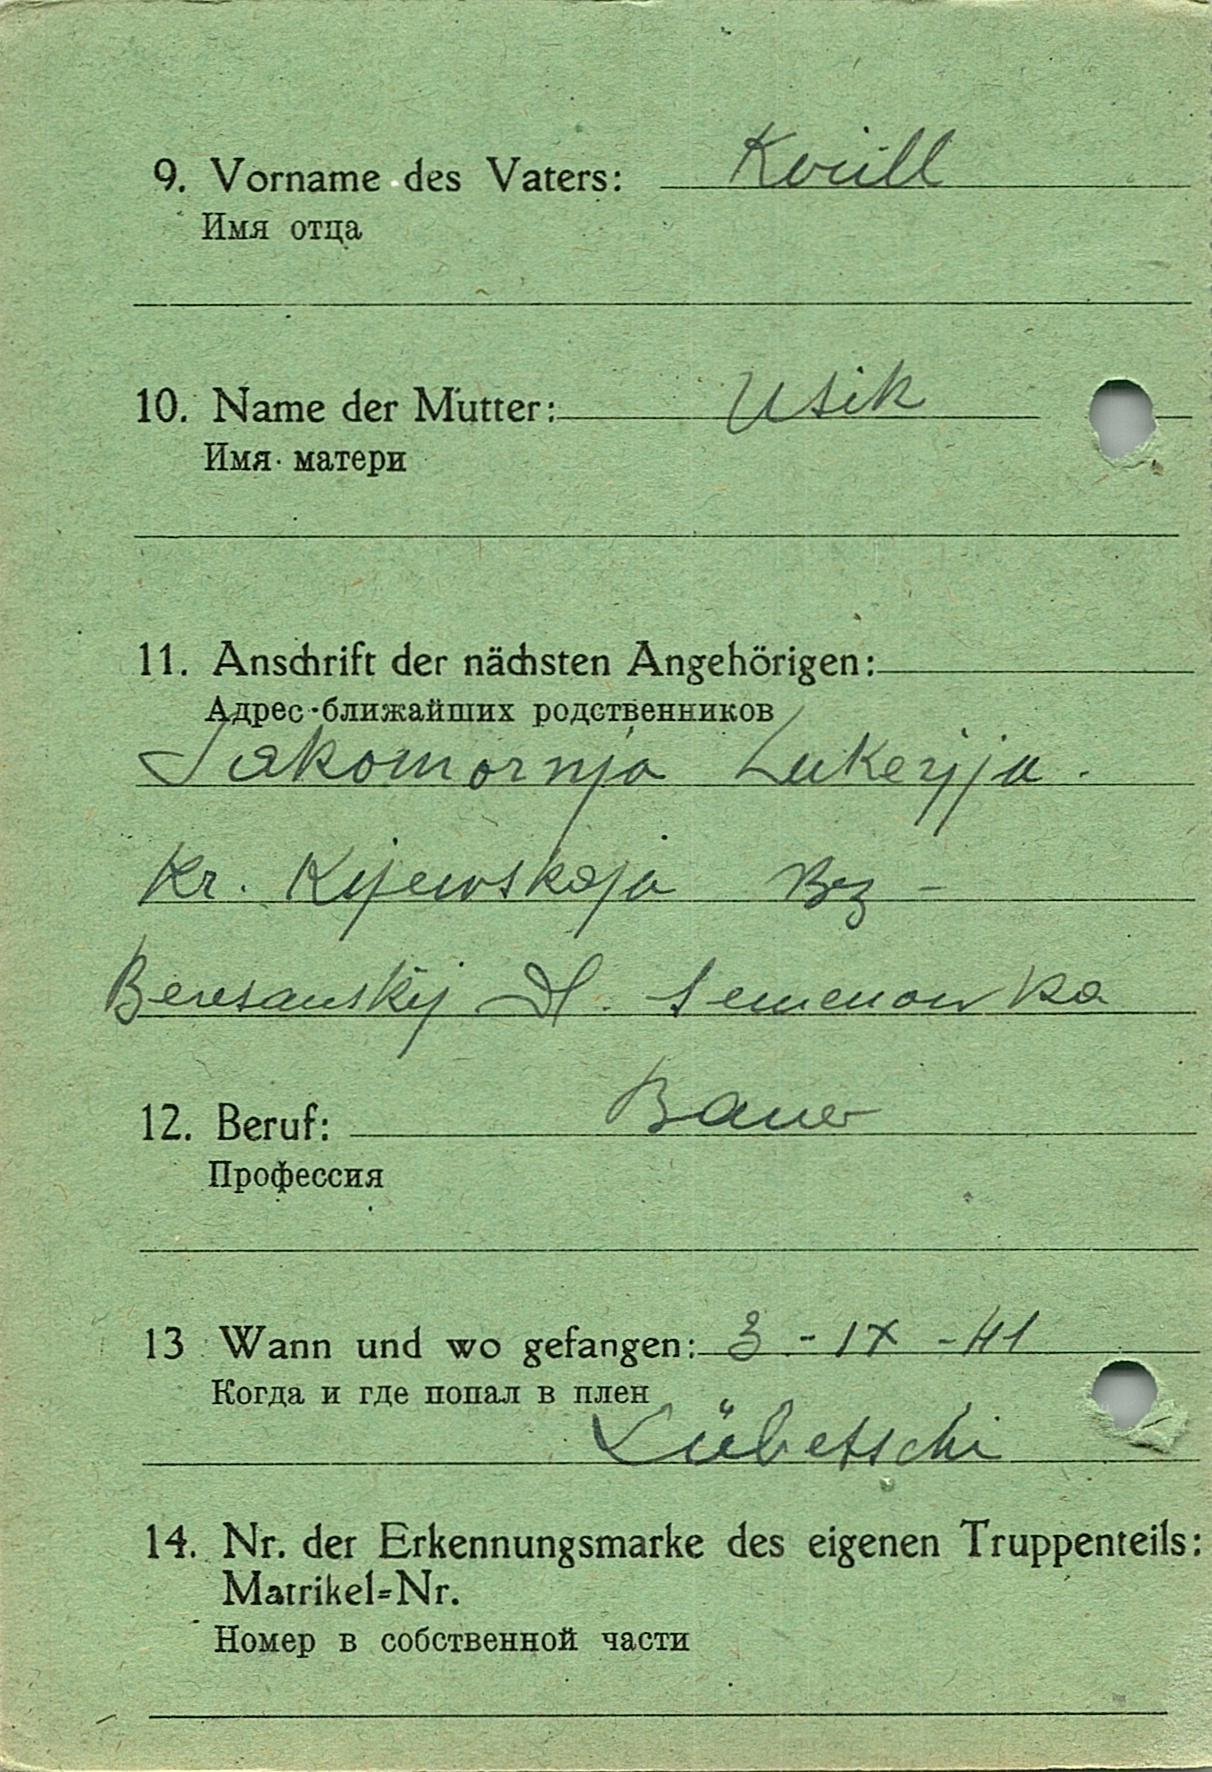 9. Vorname des Vaters: Kirill
Имя отца
10. Name der Mutter: Usik
Имя матери
11. Anschrift der nächsten Angehörigen:
Адрес ближайших родственников
Lukerjja.
Kr. Kijewskaja Bez-
Beresanskij D. Semenowka
12. Beruf: Bauer
Профессия
13 Wann und wo gefangen: 3 - IX - 41
Когда и где попал в плен
Lübetschi
14. Nr. der Erkennungsmarke des eigenen Truppenteils:
Matrikel=Nr.
Номер в собственной части